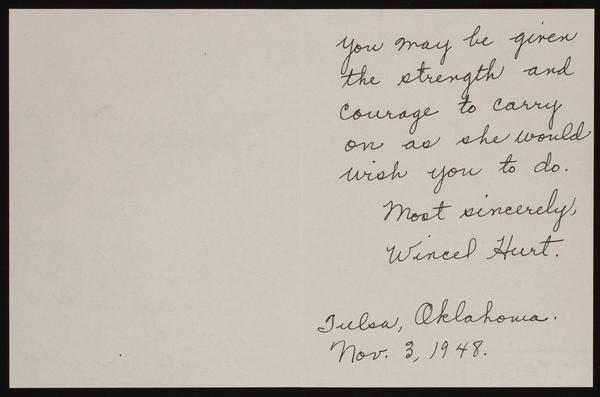 you may be given
the strength and
courage to carry
on as she would
wish you to do.
Most sincerely,
Wincel Hurt.
Tulsa, Oklahoma.
Nov. 3, 1948.